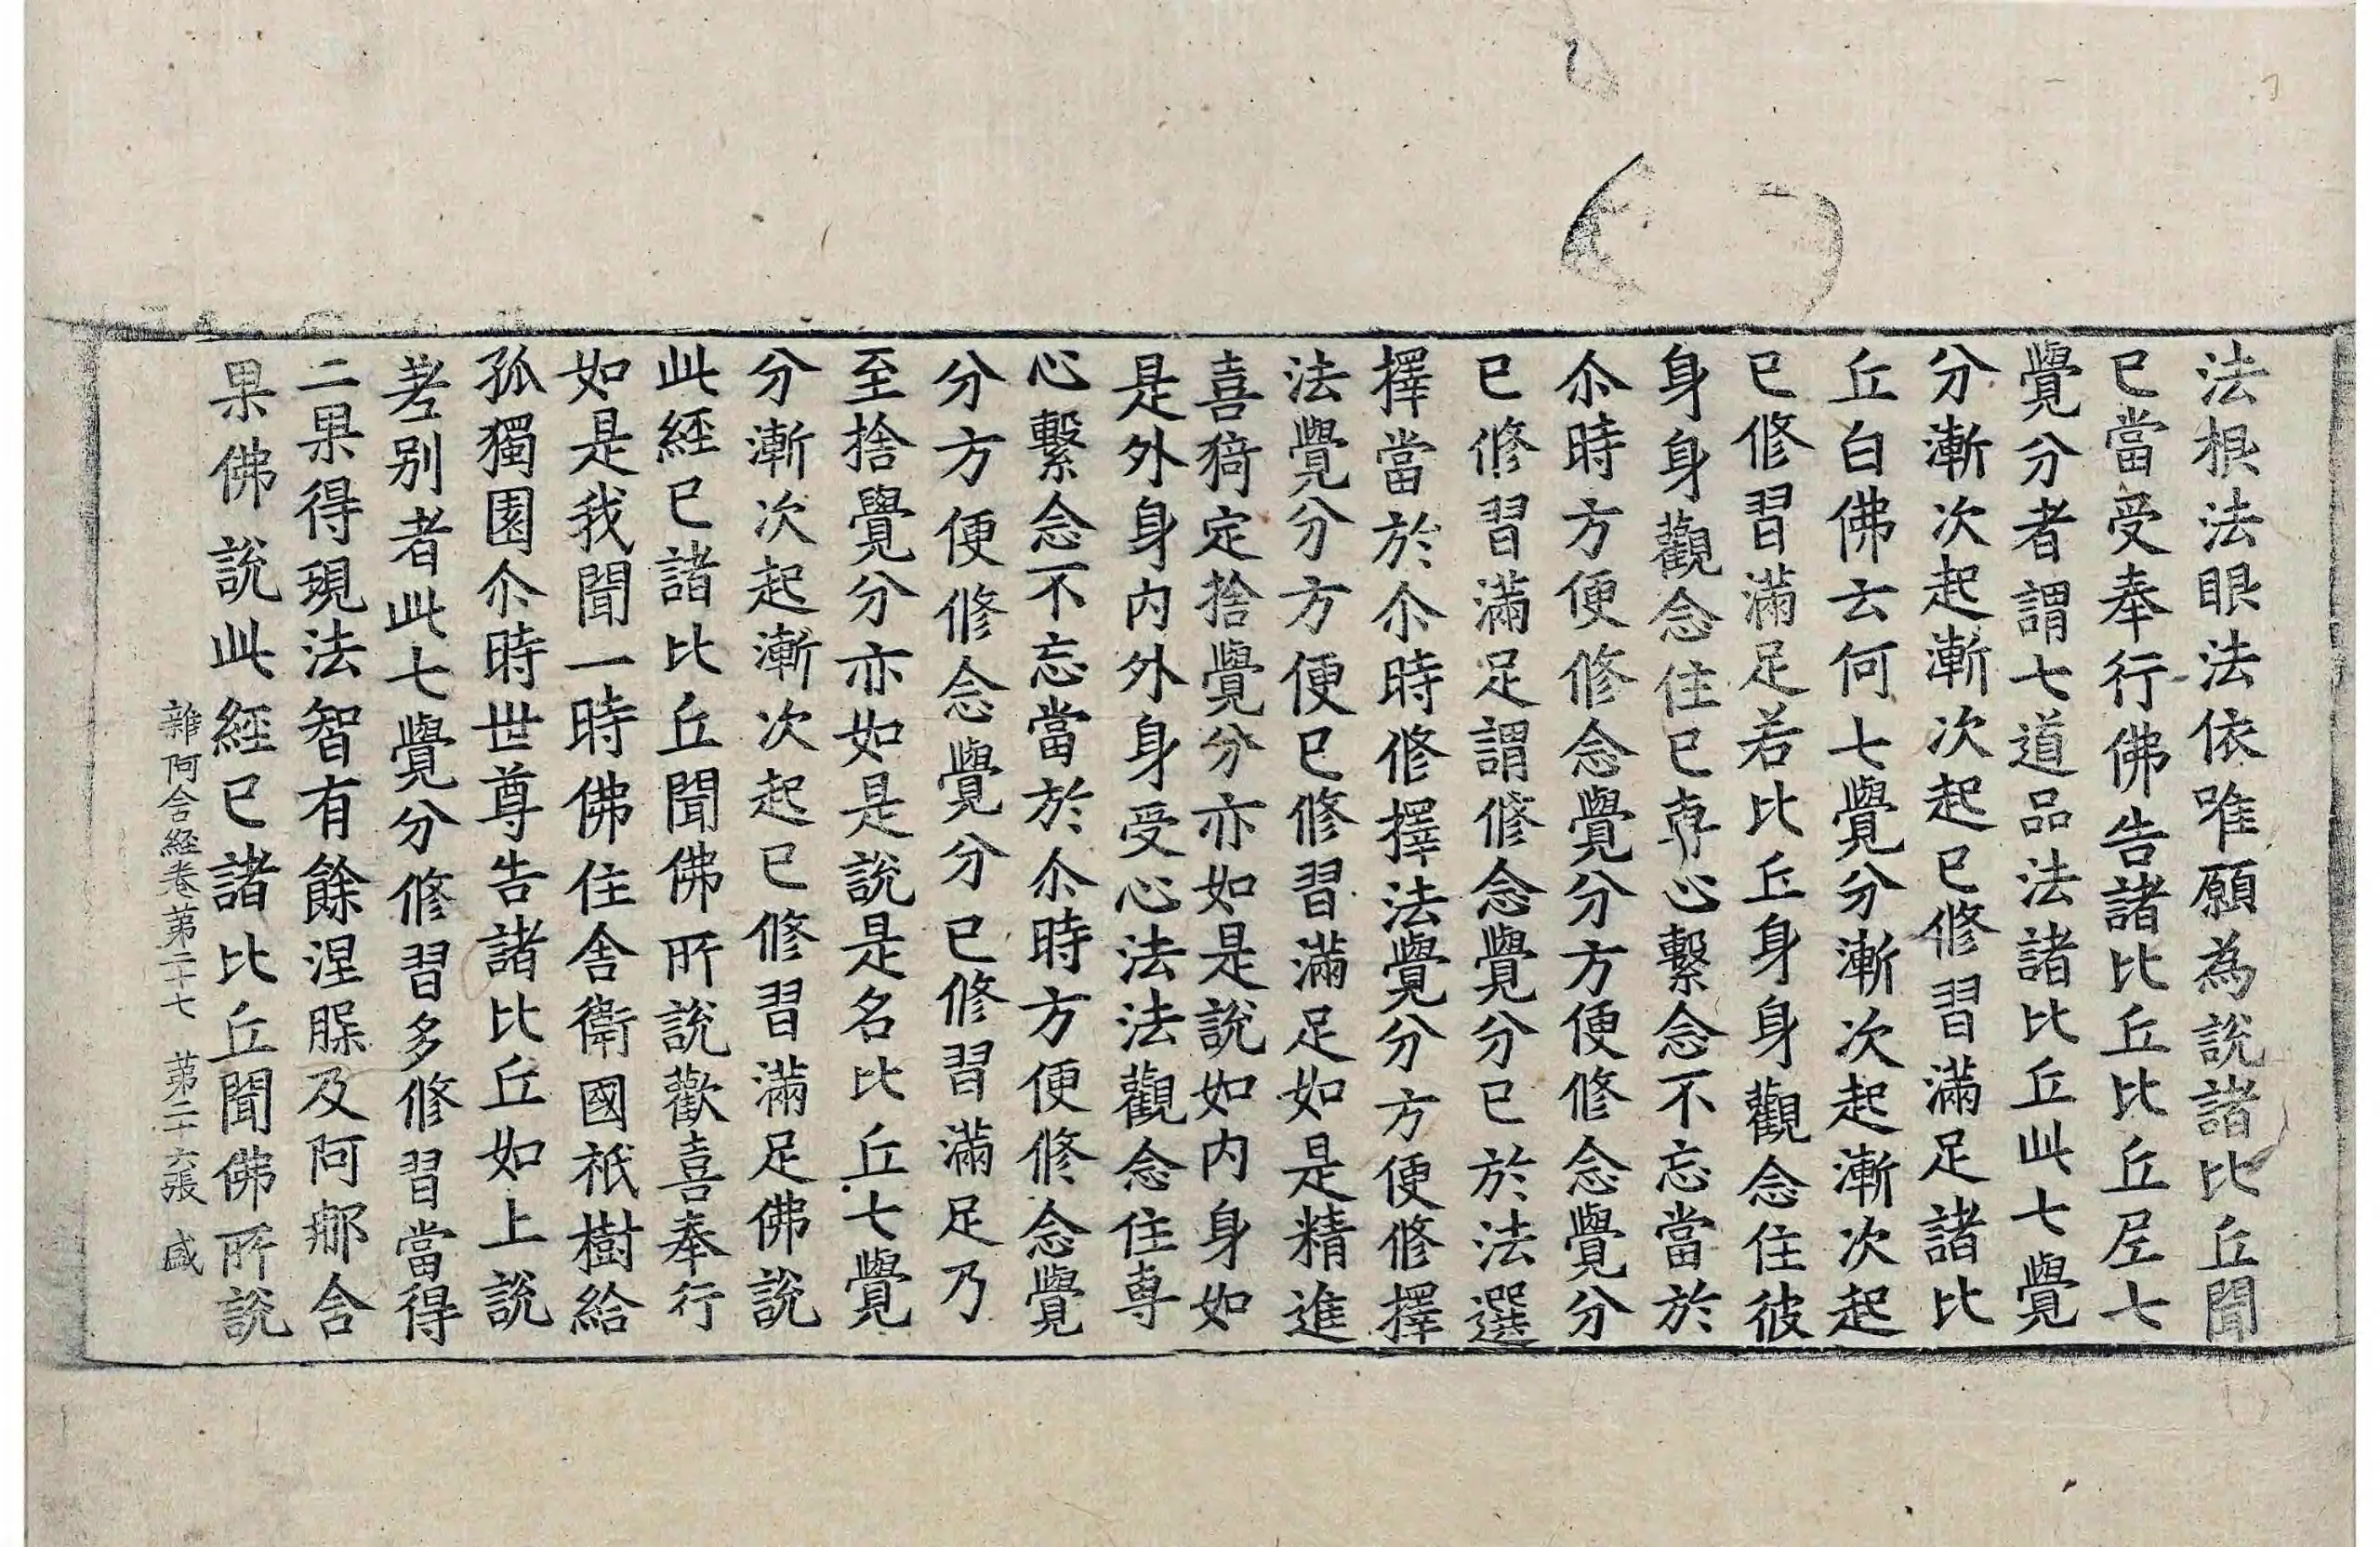 法根法眼法依唯願為說諸比丘聞
已當受奉行佛告諸比丘比丘尼七
覺分者謂七道品法諸比丘此七覺
分漸次起漸次起已修習滿足諸比
丘白佛云何七覺分漸次起漸次起
已修習滿足若比丘身身觀念住彼
身身觀念住已專心繫念不忘當於
尒時方便修念覺分方便修念覺分
已修習滿足謂修念覺分已於法選
擇當於尒時修擇法覺分方便修擇
法覺分方便已修習滿足如是精進
喜猗定捨覺分亦如是說如內身如
是外身內外身受心法法觀念住專
心繫念不忘當於尒時方便修念覺
分方便修念覺分已修習滿足乃
至捨覺分亦如是說是名比丘七覺
分漸次起漸次起已修習滿足佛說
此經已諸比丘聞佛所說歡喜奉行
如是我聞一時佛住舍衛國祇樹給
孤獨園尒時世尊告諸比丘如上說
差別者此七覺分修習多修習當得
二果得現法智有餘涅槃及阿那含
果佛說此經已諸比丘聞佛所說
雜阿含經卷第二十七 第二十六張 盛